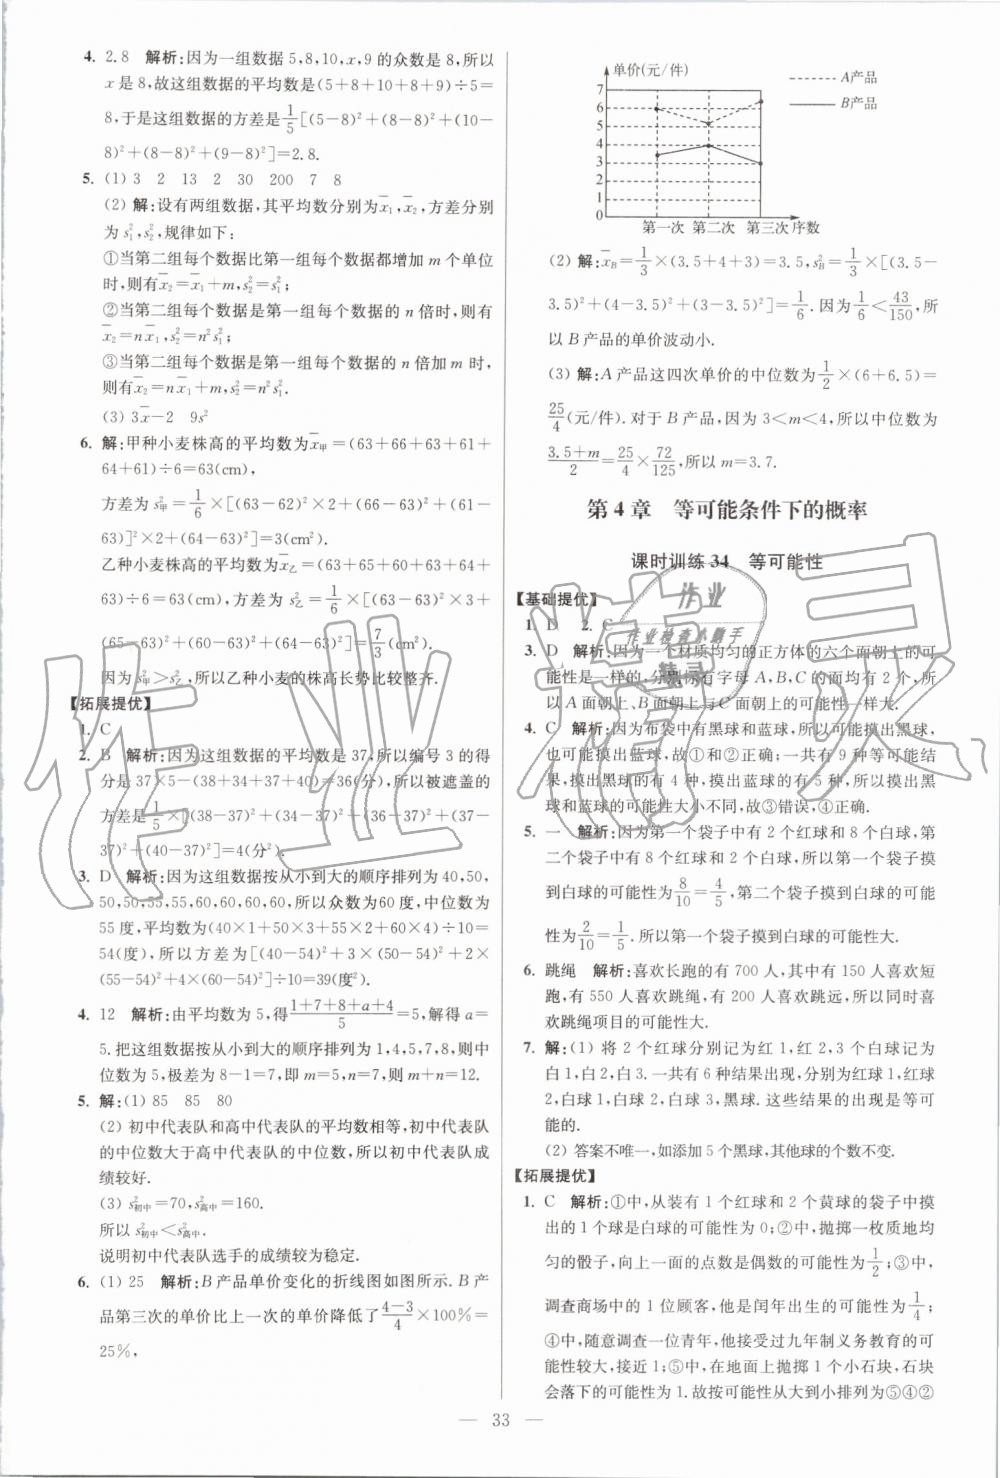 4. 2.8　解析:因为一组数据5,8,10,x,9的众数是8,所以
x是8,故这组数据的平均数是(5+8+10+8+9)÷5=
8,于是这组数据的方差是1/5[(5-8)²+(8-8)²+(10-
8)²+(8-8)²+(9-8)²]=2.8.
5. (1) 3　2　13　2　30　200　7　8
(2) 解:设有两组数据,其平均数分别为x̄₁,x̄₂,方差分别
为s₁²,s₂²,规律如下:
①当第二组每个数据比第一组每个数据都增加m个单位
时,则有x̄₂=x̄₁+m,s₂²=s₁²;
②当第二组每个数据是第一组每个数据的n倍时,则有
x̄₂=nx̄₁,s₂²=n²s₁²;
③当第二组每个数据是第一组每个数据的n倍加m时,
则有x̄₂=nx̄₁+m,s₂²=n²s₁².
(3) 3x̄-2　9s²
6. 解:甲种小麦株高的平均数为x̄甲=(63+66+63+61+
64+61)÷6=63(cm),
方差为s甲²=1/6×[(63-62)²×2+(66-63)²+(61-
63)]²×2+(64-63)²]=3(cm²).
乙种小麦株高的平均数为x̄乙=(63+65+60+63+64+
63)÷6=63(cm),方差为s乙²=1/6×[(63-63)²×3+
(65-63)²+(60-63)²+(64-63)²]=7/3(cm²).
因为s甲²>s乙²,所以乙种小麦的株高长势比较整齐.
【拓展提优】
1. C
2. B　解析:因为这组数据的平均数是37,所以编号3的得
分是37×5-(38+34+37+40)=36(分),所以被遮盖的
方差是1/5×[(38-37)²+(34-37)²+(36-37)²+(37-
37)²+(40-37)²]=4(分²).
3. D　解析:因为这组数据按从小到大的顺序排列为40,50,
50,50,55,55,60,60,60,60,所以众数为60度,中位数为
55度,平均数为(40×1+50×3+55×2+60×4)÷10=
54(度),所以方差为[(40-54)²+3×(50-54)²+2×
(55-54)²+4×(60-54)²]÷10=39(度²).
4. 12　解析:由平均数为5,得(1+7+8+a+4)/5=5,解得a=
5.把这组数据按从小到大的顺序排列为1,4,5,7,8,则中
位数为5,极差为8-1=7,即m=5,n=7,则m+n=12.
5. 解:(1) 85　85　80
(2) 初中代表队和高中代表队的平均数相等,初中代表队
的中位数大于高中代表队的中位数,所以初中代表队的成
绩较好.
(3) s初中²=70,s高中²=160.
所以s初中²<s高中².
说明初中代表队选手的成绩较为稳定.
6. (1) 25　解析:B产品单价变化的折线图如图所示.B产
品第三次的单价比上一次的单价降低了(4-3)/4×100%=
25%,
单价(元/件)
A产品
B产品
7
6
5
4
3
2
1
0
第一次 第二次 第三次 序数
(2) 解:x̄B=1/3×(3.5+4+3)=3.5,sB²=1/3×[(3.5-
3.5)²+(4-3.5)²+(3-3.5)²]=1/6.因为1/6<43/150,所
以B产品的单价波动小.
(3) 解:A产品这四次单价的中位数为1/2×(6+6.5)=
25/4(元/件).对于B产品,因为3<m<4,所以中位数为
(3.5+m)/2=25/4×72/125,所以m=3.7.
第4章　等可能条件下的概率
课时训练34　等可能性
【基础提优】
1. D　2. C
3. D　解析:因为一个材质均匀的正方体的六个面朝上的可
能性是一样的,分别标有字母A,B,C的面均有2个,所
以A面朝上、B面朝上与C面朝上的可能性一样大.
4. C　解析:因为布袋中有黑球和蓝球,所以可能摸出黑球,
也可能摸出蓝球,故①和②正确;一共有9种等可能结
果,摸出黑球的有4种,摸出蓝球的有5种,所以摸出黑
球和蓝球的可能性大小不同,故③错误,④正确.
5. 一　解析:因为第一个袋子中有2个红球和8个白球,第
二个袋子中有8个红球和2个白球,所以第一个袋子摸
到白球的可能性为8/10=4/5,第二个袋子摸到白球的可能
性为2/10=1/5.所以第一个袋子摸到白球的可能性大.
6. 跳绳　解析:喜欢长跑的有700人,其中有150人喜欢短
跑,有550人喜欢跳绳,有200人喜欢跳远,所以同时喜
欢跳绳项目的可能性大.
7. 解:(1) 将2个红球分别记为红1,红2,3个白球记为
白1,白2,白3.一共有6种结果出现,分别为红球1,红球
2,白球1,白球2,白球3,黑球.这些结果的出现是等可
能的.
(2) 答案不唯一,如添加5个黑球,其他球的个数不变.
【拓展提优】
1. C　解析:①中,从装有1个红球和2个黄球的袋子中摸
出的1个球是白球的可能性为0;②中,抛掷一枚质地均
匀的骰子,向上一面的点数是偶数的可能性为1/2;③中,
调查商场中的1位顾客,他是闰年出生的可能性为1/4;
④中,随意调查一位青年,他接受过九年制义务教育的可
能性较大,接近1;⑤中,在地面上抛掷1个小石块,石块
会落下的可能性为1.故按可能性从大到小排列为⑤④②
— 33 —
作业
作业检查小助手
精灵
作业精灵